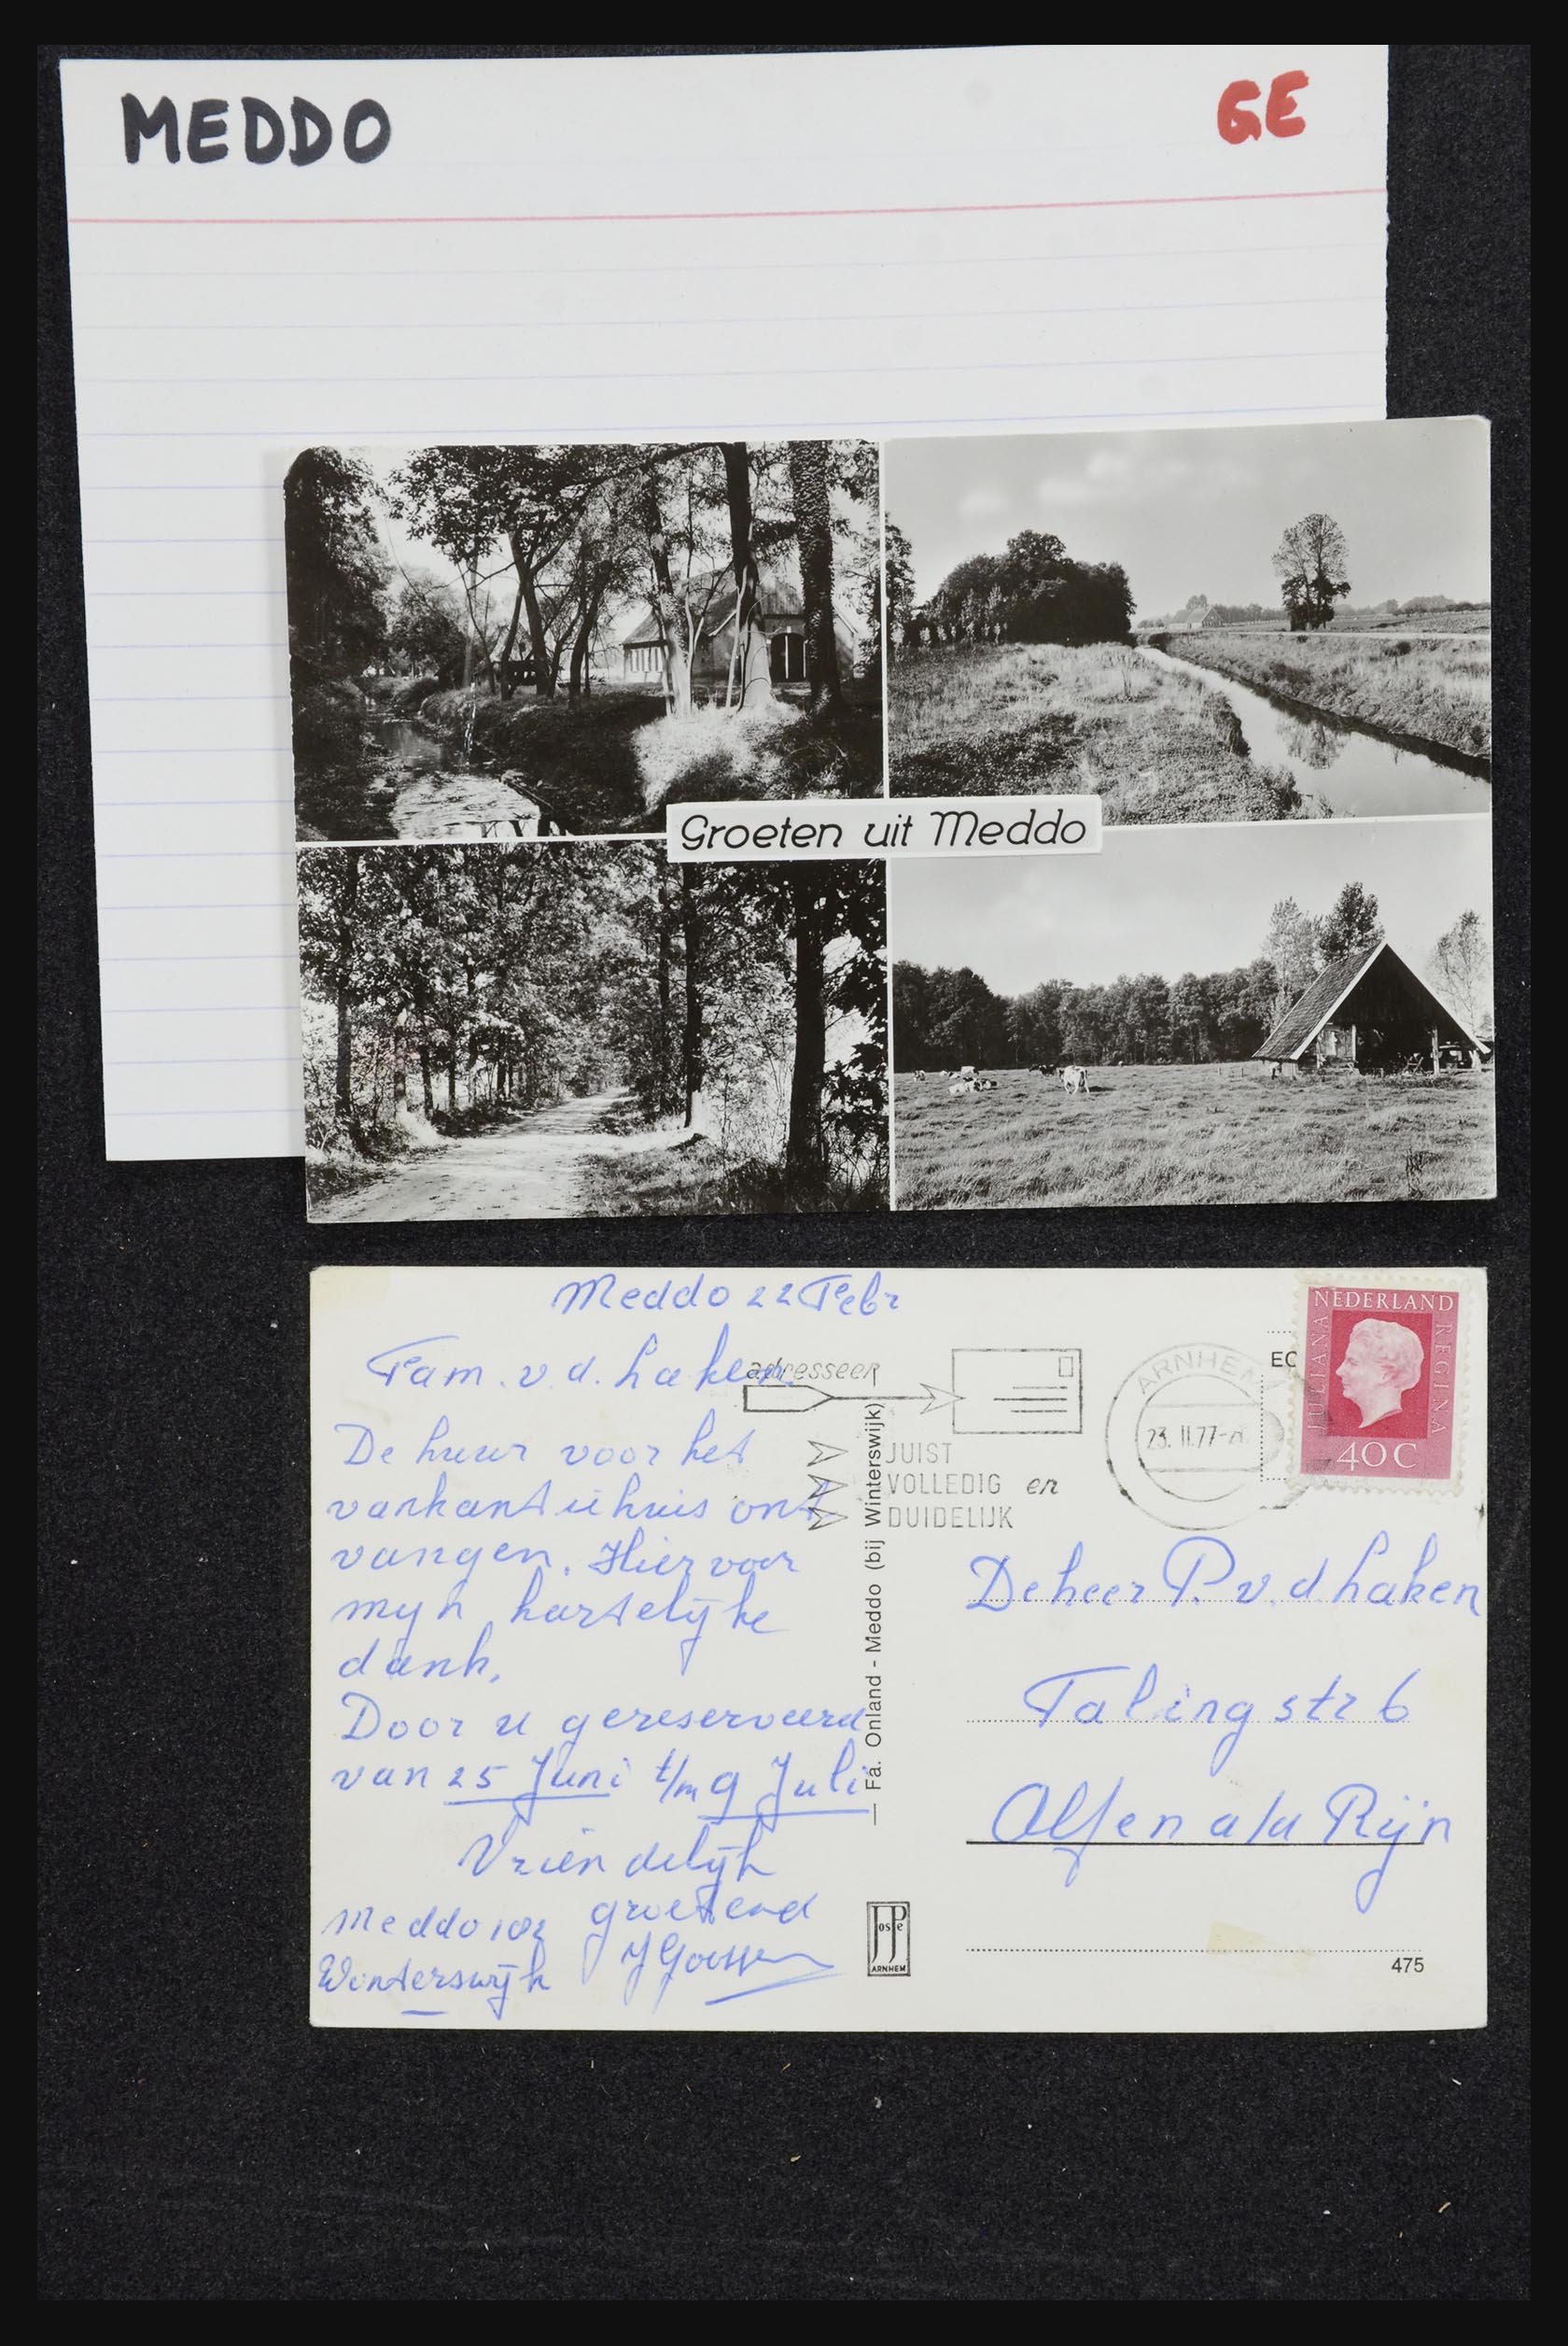 MEDDO
GE
Groeten uit Meddo
Meddo 22 Febr
Fam. v. d. Laken.
De huur voor het
vankantiehuis ont
vangen. Hiervoor
myn hartelijke
dank.
Door u gereserveerd
van 25 Juni t/m 9 Juli
Vriendelijk
groetend
Meddo 102
Winterswijk
adresseer
JUIST
VOLLEDIG en
DUIDELIJK
ARNHEM
23. II.77
EC
NEDERLAND
JULIANA REGINA
40C
Fa. Onland - Meddo (bij Winterswijk)
De heer P. v. d Laken
Talingstr 6
Alfen a/d Rijn
JosPe
ARNHEM
475